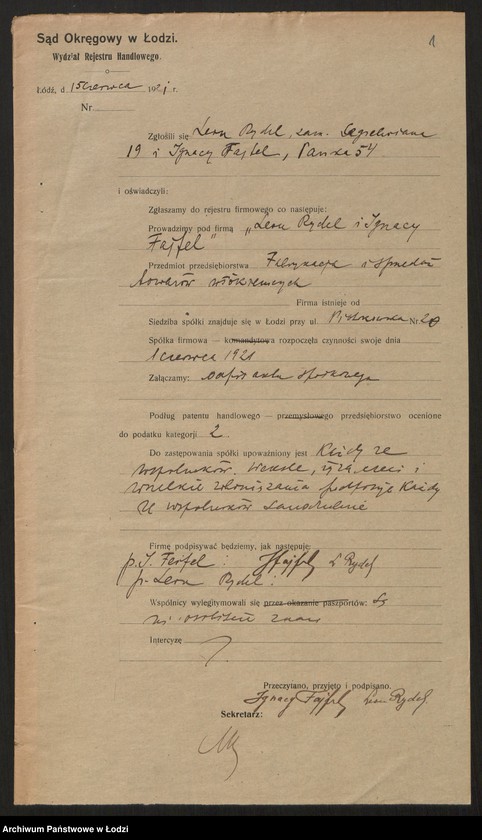 Sąd Okręgowy w Łodzi.
1
Wydział Rejestru Handlowego.
Łódź, d. 15 czerwca 1921 r.
Nr
Zgłosili się Leon Rydel, zam.
19 i Ignacy Fajfel, Pańska 54
i oświadczyli:
Zgłaszamy do rejestru firmowego co następuje:
Prowadzimy pod firmą „Leon Rydel i Ignacy
Fajfel"
Przedmiot przedsiębiorstwa Fabrykacja i sprzedaż
towarów włókienniczych
Firma istnieje od
Siedziba spółki znajduje się w Łodzi przy ul. Piotrkowska Nr 20
Spółka firmowa — komandytowa rozpoczęła czynności swoje dnia
1 czerwca 1921
Załączamy: odpis aktu spółkowego
Podług patentu handlowego — przemysłowego przedsiębiorstwo ocenione
do podatku kategorji 2
Do zastępowania spółki upoważniony jest Każdy ze
wspólników. Weksle, czeki i
wszelkie zobowiązania podpisuje Każdy
ze wspólników samodzielnie
Firmę podpisywać będziemy, jak następuje:
p. I. Fajfel: IFajfel L Rydel
p. Leon Rydel:
Wspólnicy wylegitymowali się przez okazanie paszportów: Są
mi osobiście znani
Intercyzę
Przeczytano, przyjęto i podpisano.
Ignacy Fajfel Leon Rydel
Sekretarz:
Archiwum Państwowe w Łodzi